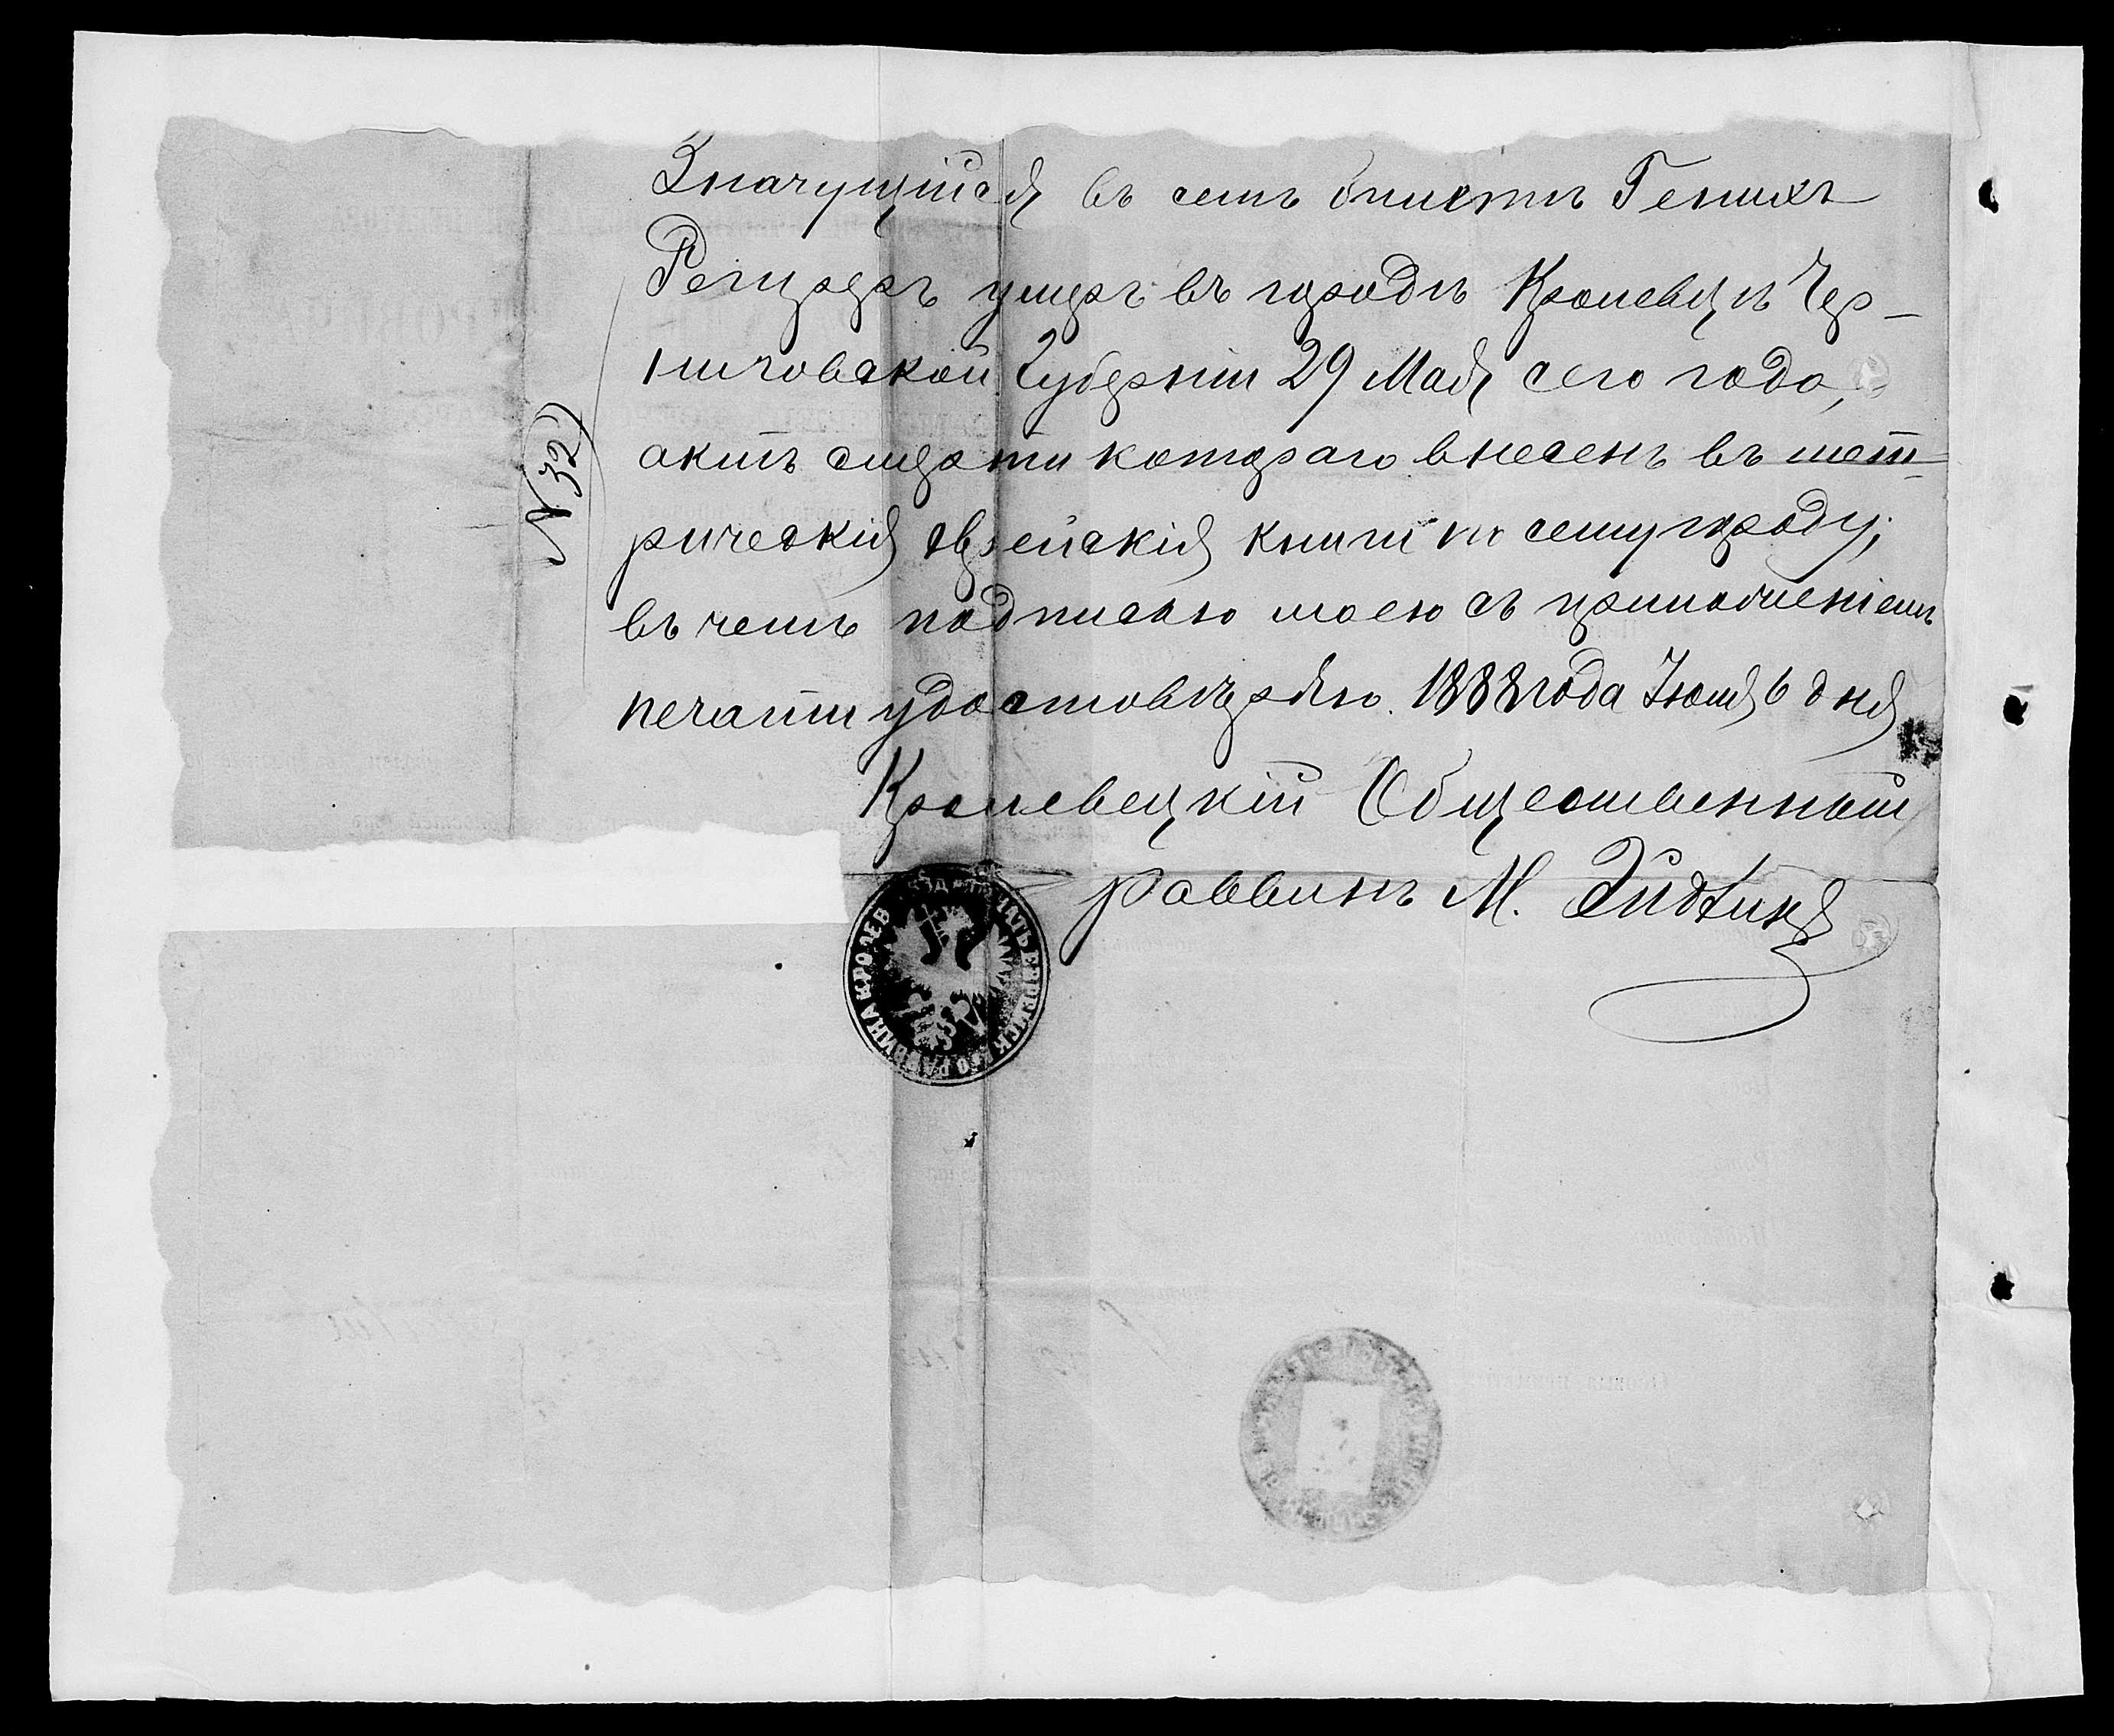 Значущійся въ семъ билетѣ Генихъ
Речцеръ умеръ въ городѣ Кролевцѣ Чер-
ниговской Губерніи 29 Мая сего года,
актъ смерти котораго внесенъ въ мет-
рическія еврейскія книги по сему городу;
въ чемъ подписью моею съ приложеніемъ
печати удостовѣряю. 1888 года Іюня 6 дня
Кролевецкій Общественный
раввинъ М.
N 32